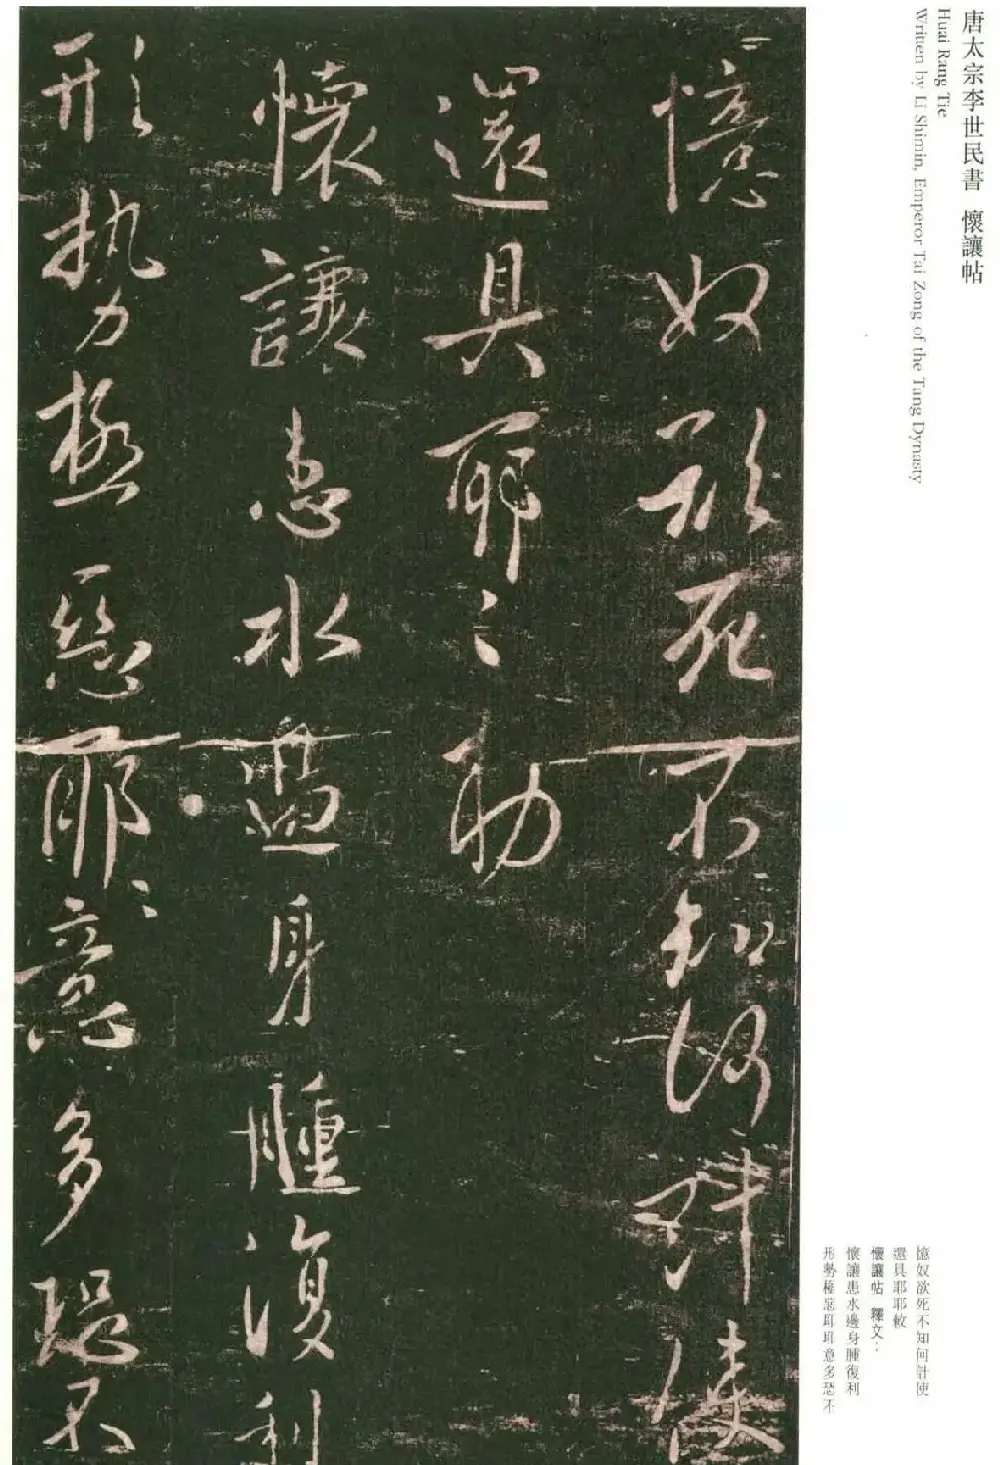 唐太宗李世民書 懷讓帖
Huai Rang Tie
Written by Li Shimin, Emperor Tai Zong of the Tang Dynasty
憶奴欲死不知何計使
還具耶耶敕
懷讓患水邊身腫復利
形勢極惡耶耶意多恐不
憶奴欲死不知何計使
還具耶耶敕
懷讓帖 釋文：
懷讓患水邊身腫復利
形勢極惡耶耶意多恐不